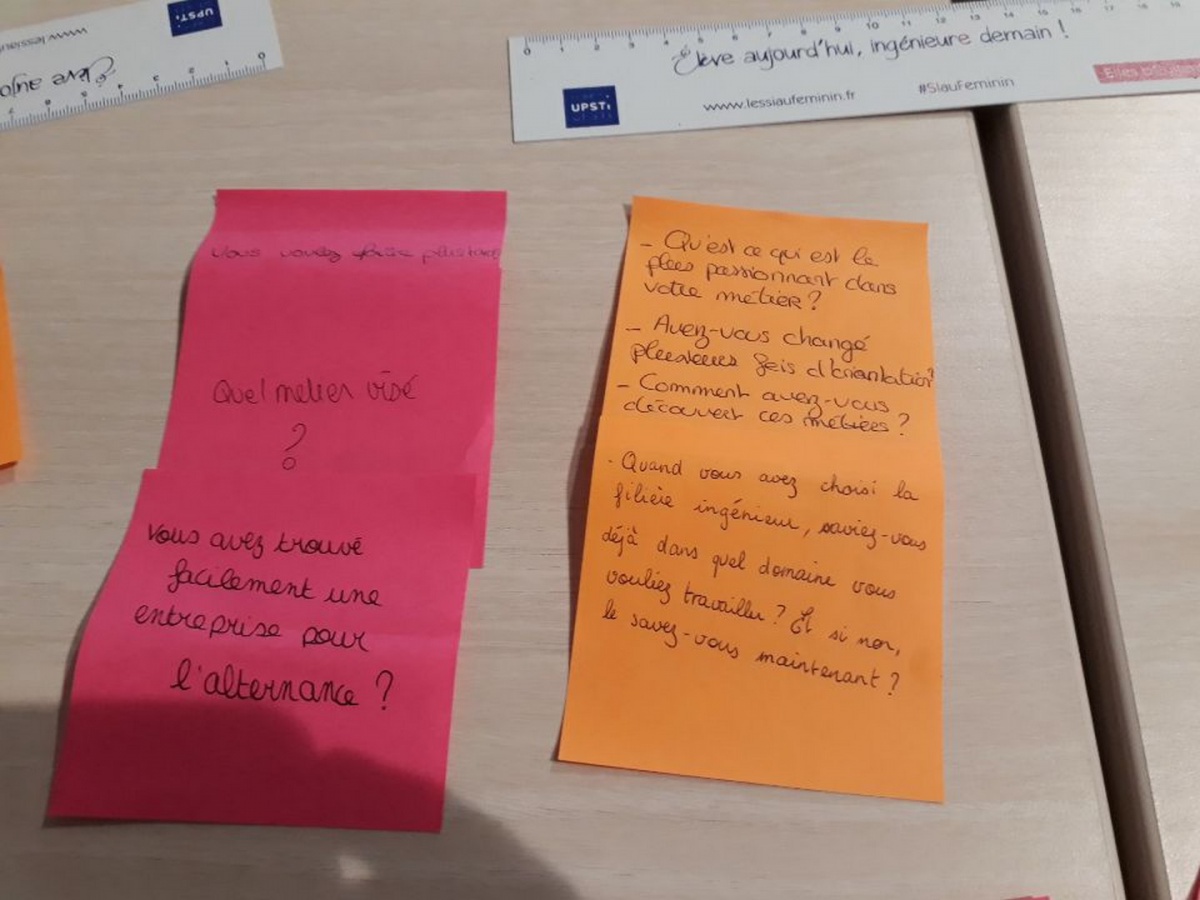 0 1 2 3 4 5 6 7 8 9 10 11 12 13 14 15 16 17 18 19
Élève aujourd'hui, ingénieure demain !
UPSTi
www.lessiaufeminin.fr
#SIauFeminin
UPSTi
Élève aujo
vous voulez faire plus tard
Quel metier visé
?
Vous avez trouvé
facilement une
entreprise pour
l'alternance ?
- Qu'est ce qui est le
plus passionnant dans
votre métier ?
- Avez-vous changé
plusieurs fois d'orientation?
- Comment avez-vous
découvert ces métiers ?
- Quand vous avez choisi la
filière ingénieur, saviez-vous
déjà dans quel domaine vous
vouliez travailler ? Et si non,
le savez-vous maintenant ?